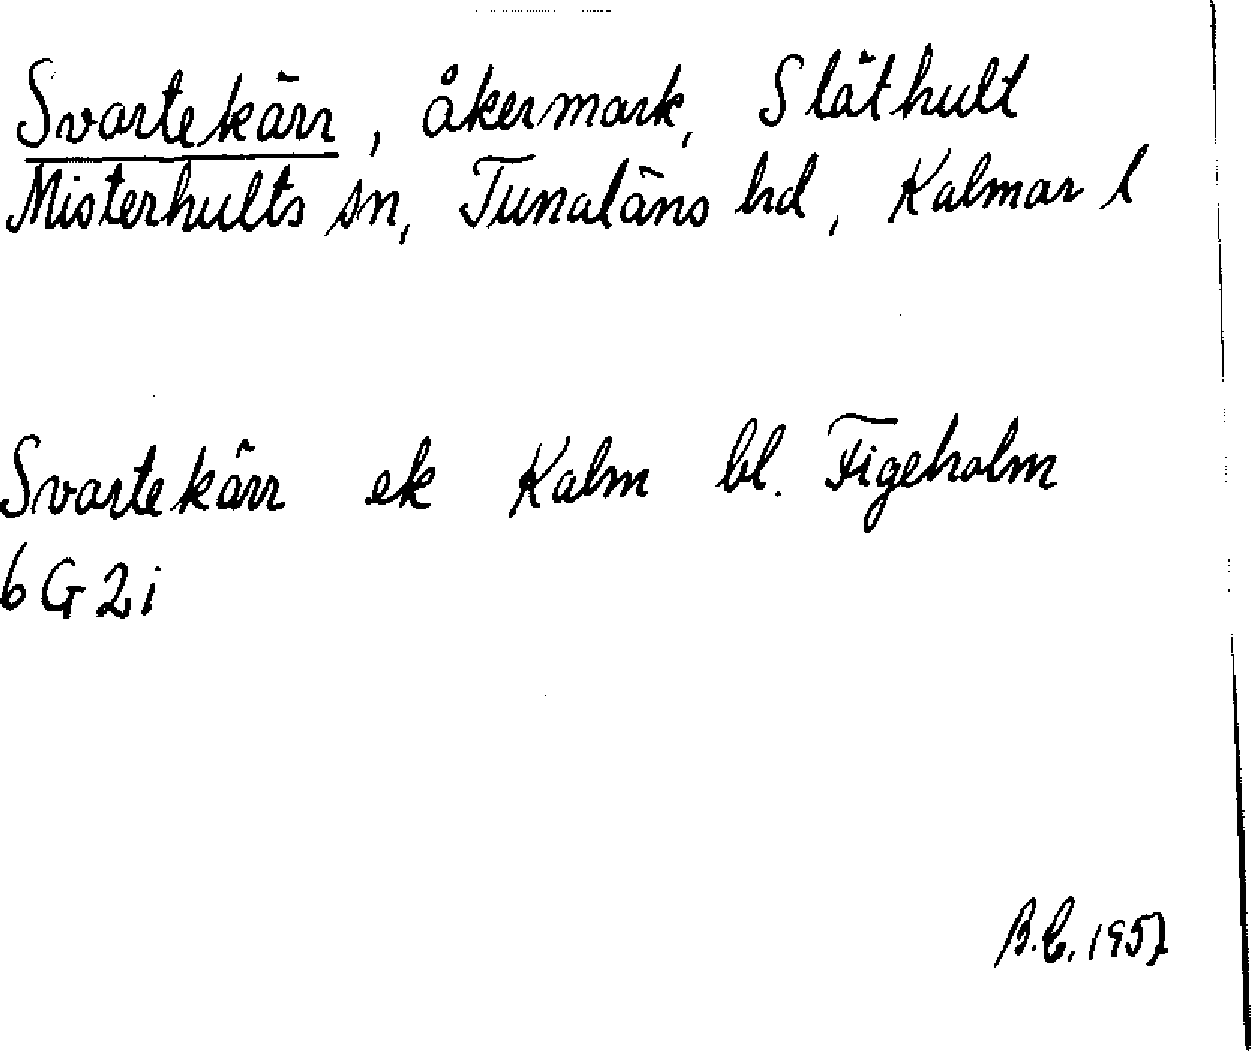 Svartekärr, åkermark, Släthult
Misterhults sn, Tunaläns hd, Kalmar l
Svartekärr ek Kalm bl. Figeholm
6G2i
B.E. 1957